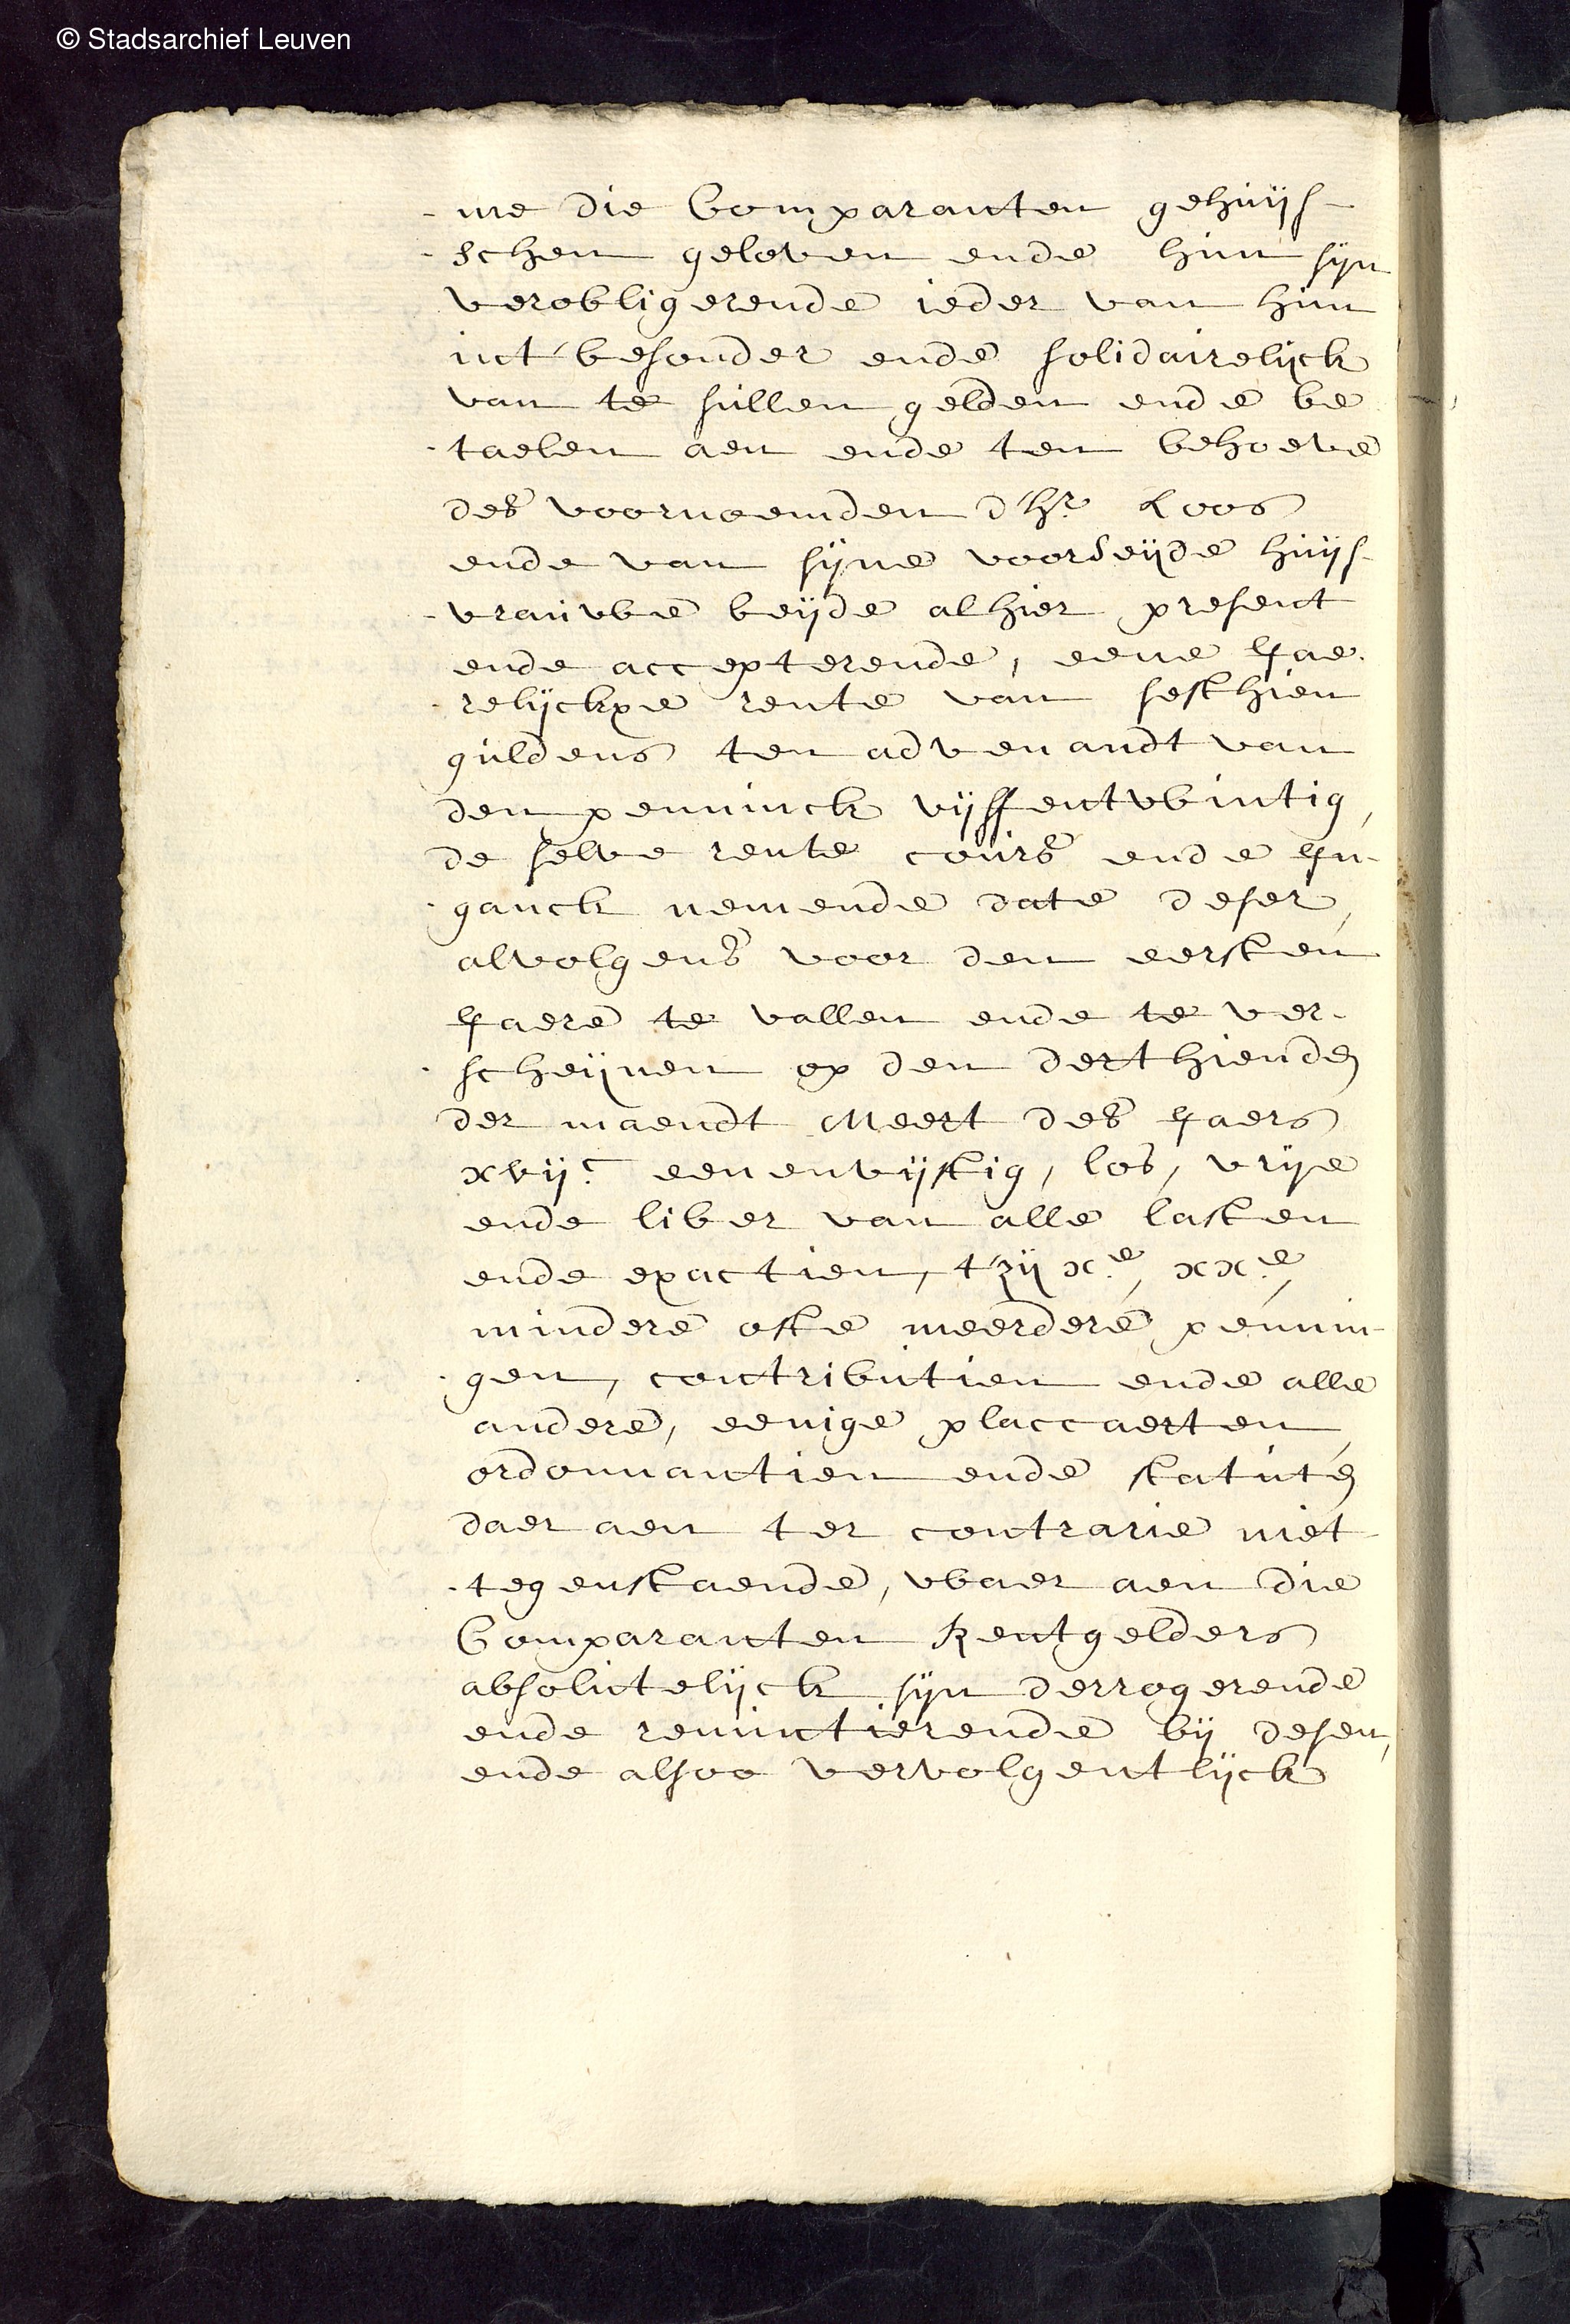 © Stadsarchief Leuven
-me die Comparanten gehuijs-
-schen geloven ende hun sijn
verobligerende ieder van hun
int' besonder ende solidairelijck
van te sullen gelden ende be
-taelen aen ende ten behoeve
des voornoemden d'hr Loos
ende van sijne voorseijde huijs-
-vrauwe beijde alhier present
ende accepterende, eene Jae-
-relijckxe rente van sesthien
guldens ten advenandt van
den penninck vijffentwintig,
de selve rente cours ende In-
-ganck nemende date deser,
alvolgens voor den eersten
Jaere te vallen ende te ver-
-scheijnen op den derthienden
der maendt Meert des Jaers
xvijc eenenvijftig, los, vrije
ende liber van alle lasten
ende exactien, t'zij xe, xxe,
mindere ofte meerdere pennin-
-gen, contributien ende alle
andere, eenige placcaerten,
ordonnantien ende statuten
daer aen ter contrarie niet-
-tegenstaende, waer aen die
Comparanten Rentgelders
absolutelijck sijn derrogerende
ende renuntierende bij desen,
ende alsoo vervolgentlijck